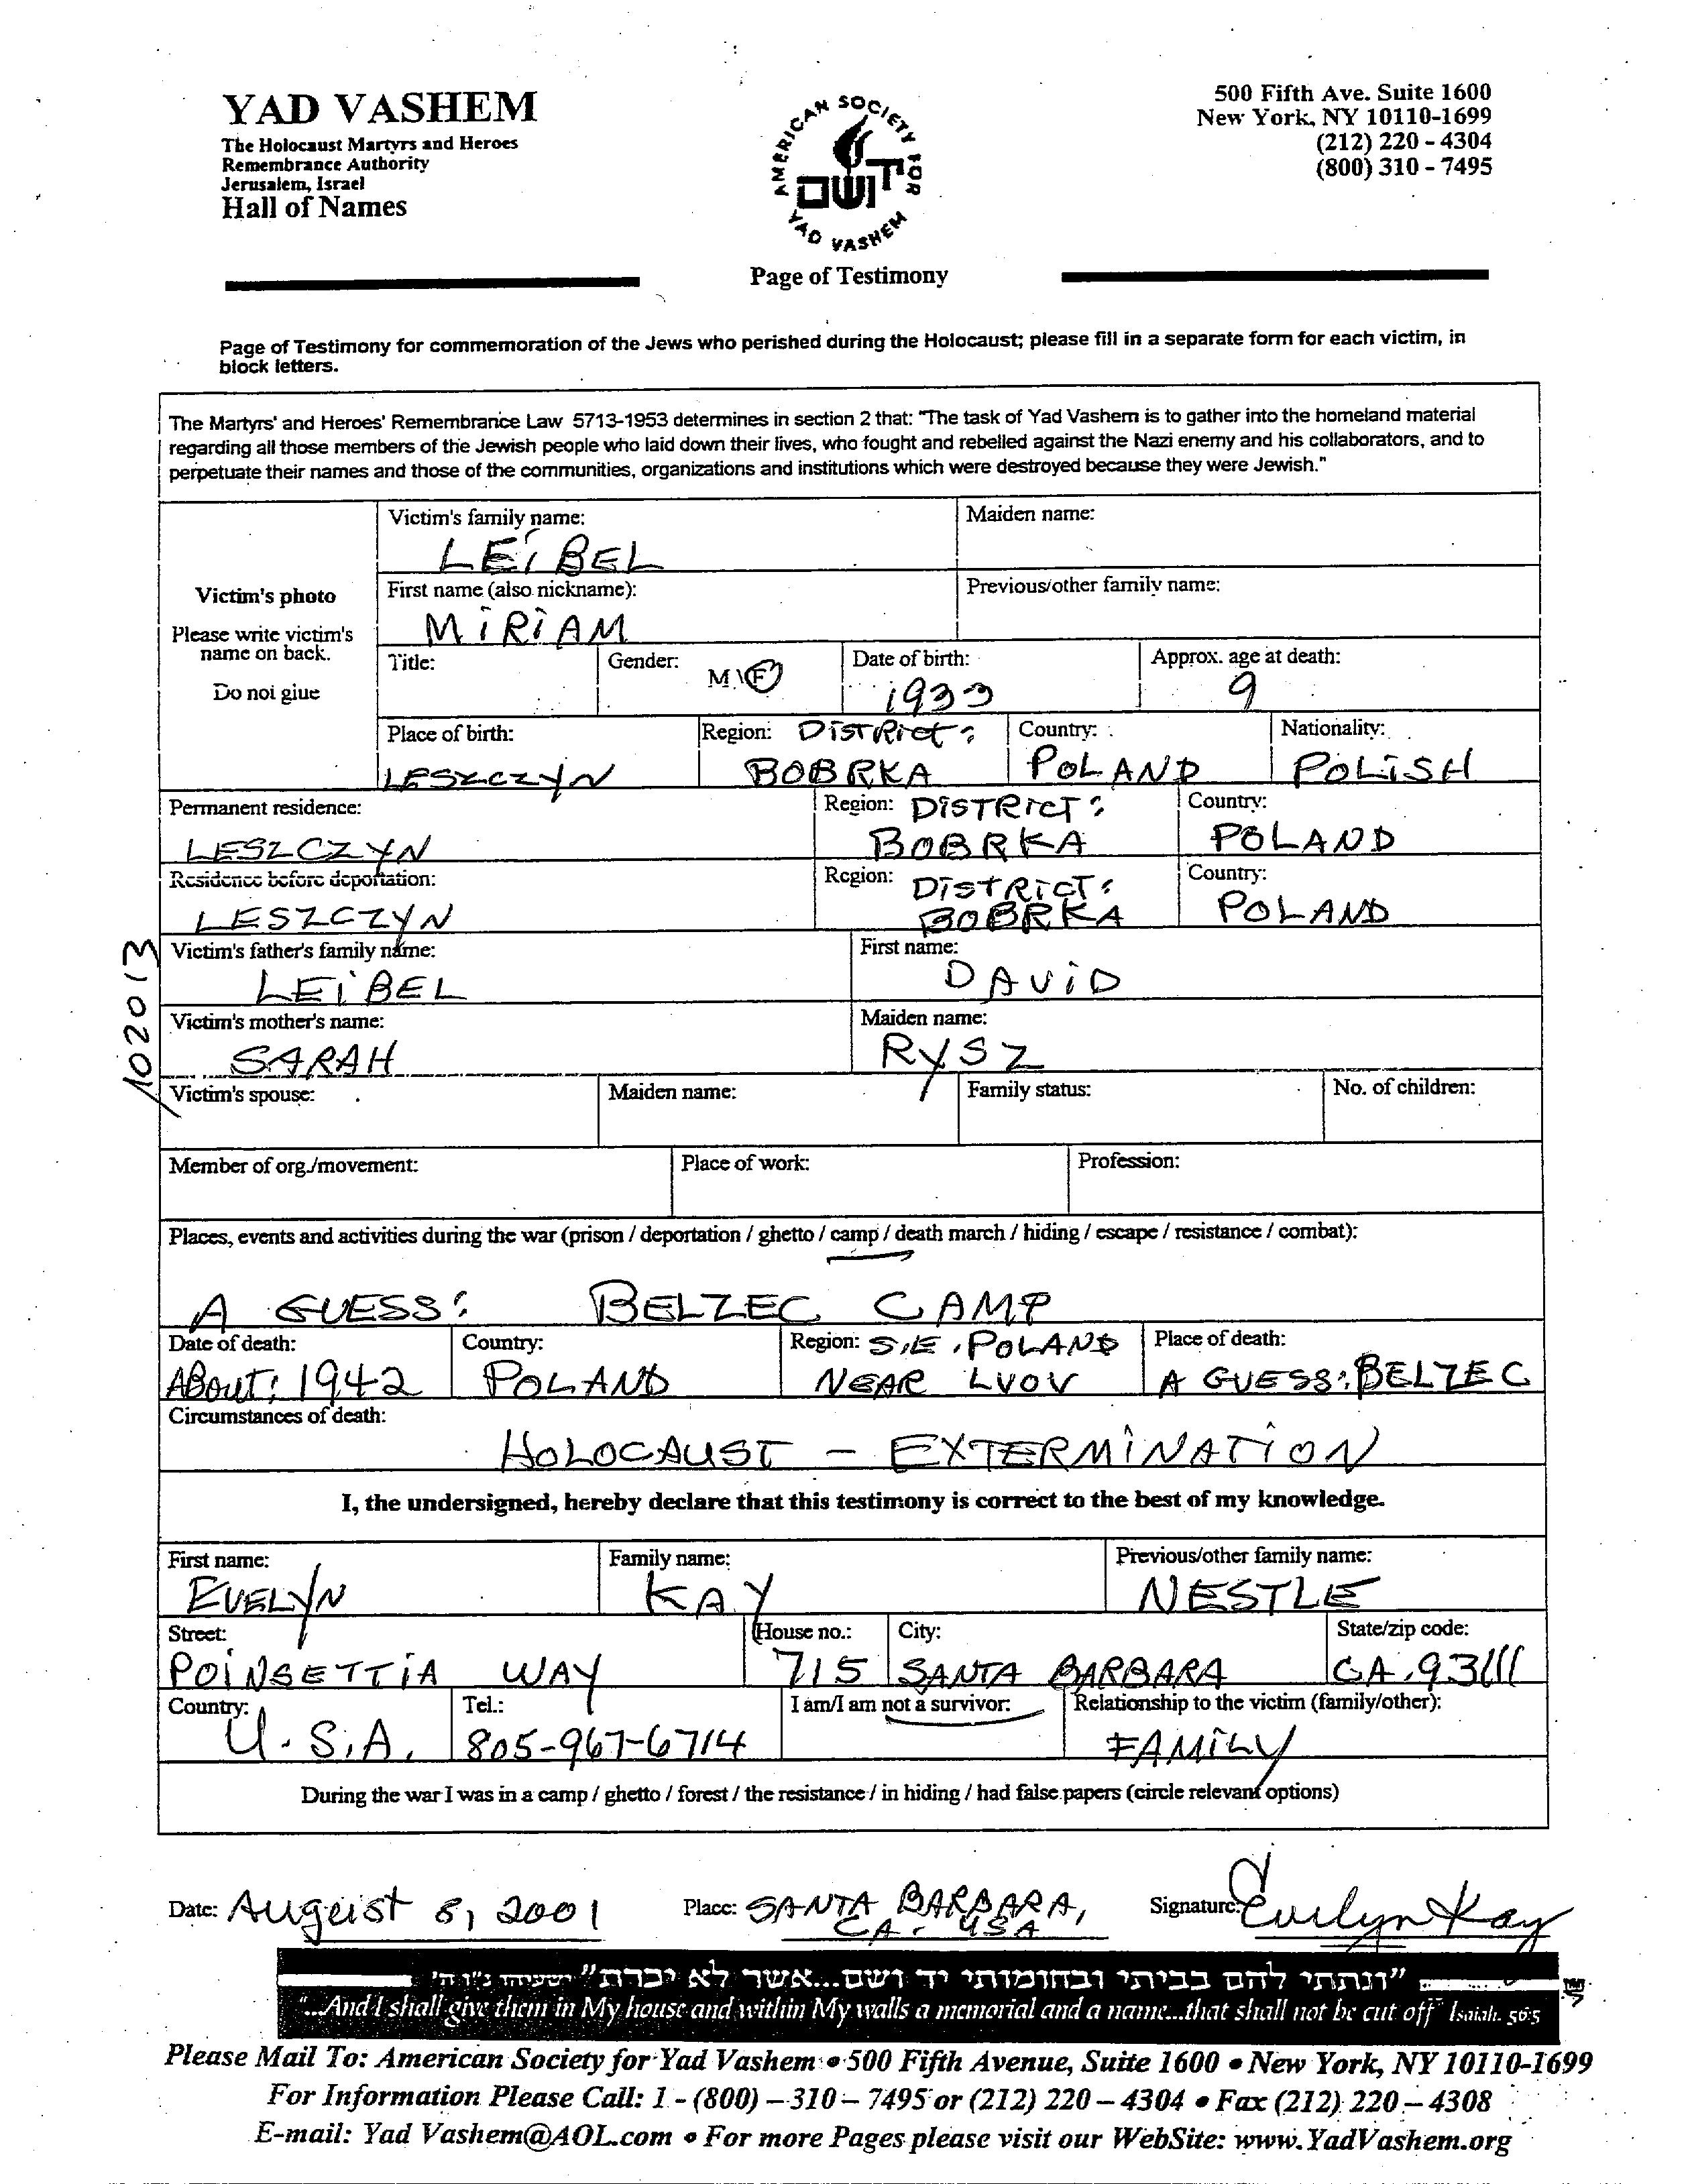 YAD VASHEM
The Holocaust Martyrs and Heroes
Remembrance Authority
Jerusalem, Israel
Hall of Names
AMERICAN SOCIETY FOR
יד ושם
YAD VASHEM
500 Fifth Ave. Suite 1600
New York, NY 10110-1699
(212) 220 - 4304
(800) 310 - 7495
Page of Testimony
Page of Testimony for commemoration of the Jews who perished during the Holocaust; please fill in a separate form for each victim, in
block letters.
The Martyrs' and Heroes' Remembrance Law 5713-1953 determines in section 2 that: "The task of Yad Vashem is to gather into the homeland material
regarding all those members of the Jewish people who laid down their lives, who fought and rebelled against the Nazi enemy and his collaborators, and to
perpetuate their names and those of the communities, organizations and institutions which were destroyed because they were Jewish."
Victim's photo
Please write victim's
name on back.
Do not glue
Victim's family name: Maiden name:
LEIBEL
First name (also nickname): Previous/other family name:
MIRIAM
Title: Gender: M\F Date of birth: Approx. age at death:
1933 9
Place of birth: Region: DISTRICT: Country: Nationality:
LESZCZYN BOBRKA POLAND POLISH
Permanent residence: Region: DISTRICT: Country:
LESZCZYN BOBRKA POLAND
Residence before deportation: Region: DISTRICT: Country:
LESZCZYN BOBRKA POLAND
102013
Victim's father's family name: First name:
LEIBEL DAVID
Victim's mother's name: Maiden name:
SARAH RYSZ
Victim's spouse: Maiden name: Family status: No. of children:
Member of org./movement: Place of work: Profession:
Places, events and activities during the war (prison / deportation / ghetto / camp / death march / hiding / escape / resistance / combat):
A GUESS: BELZEC CAMP
Date of death: Country: Region: S.E. POLAND Place of death:
ABOUT: 1942 POLAND NEAR LVOV A GUESS: BELZEC
Circumstances of death:
HOLOCAUST - EXTERMINATION
I, the undersigned, hereby declare that this testimony is correct to the best of my knowledge.
First name: Family name: Previous/other family name:
EVELYN KAY NESTLE
Street: House no.: City: State/zip code:
POINSETTIA WAY 715 SANTA BARBARA CA. 93111
Country: Tel.: I am/I am not a survivor: Relationship to the victim (family/other):
U.S.A. 805-967-6714 FAMILY
During the war I was in a camp / ghetto / forest / the resistance / in hiding / had false papers (circle relevant options)
Date: August 8, 2001 Place: SANTA BARBARA, Signature: Evelyn Kay
CA. USA
"ונתתי להם בביתי ובחומותי יד ושם...אשר לא יכרת" ישעיהו נ"ו ה'
"...And I shall give them in My house and within My walls a memorial and a name...that shall not be cut off" Isaiah. 56:5
Please Mail To: American Society for Yad Vashem • 500 Fifth Avenue, Suite 1600 • New York, NY 10110-1699
For Information Please Call: 1 - (800) – 310 – 7495 or (212) 220 – 4304 • Fax (212) 220 – 4308
E-mail: Yad Vashem@AOL.com • For more Pages please visit our WebSite: www.YadVashem.org